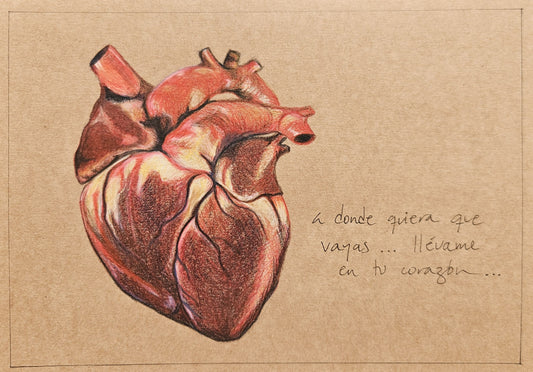 a donde quiera que
vayas ... llévame
en tu corazón ...